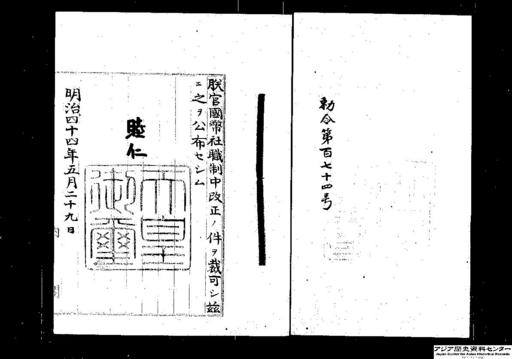 勅令第百七十四号
朕官國幣社職制中改正ノ件ヲ裁可シ玆
ニ之ヲ公布セシム
睦仁
天皇御璽
明治四十四年五月二十九日
アジア歴史資料センター
Japan Center for Asian Historical Records